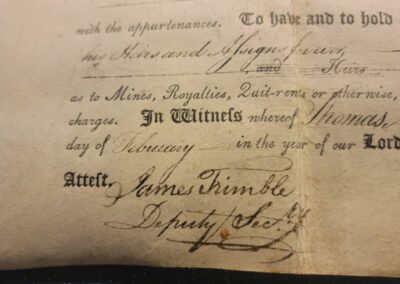 with the appurtenances. To have and to hold
his Heirs and Assigns forever,
and Heirs
as to Mines, Royalties, Quit-rents or otherwise,
charges. In Witness whereof Thomas
day of February in the year of our Lord
Attest.
James Trimble
Deputy Secry